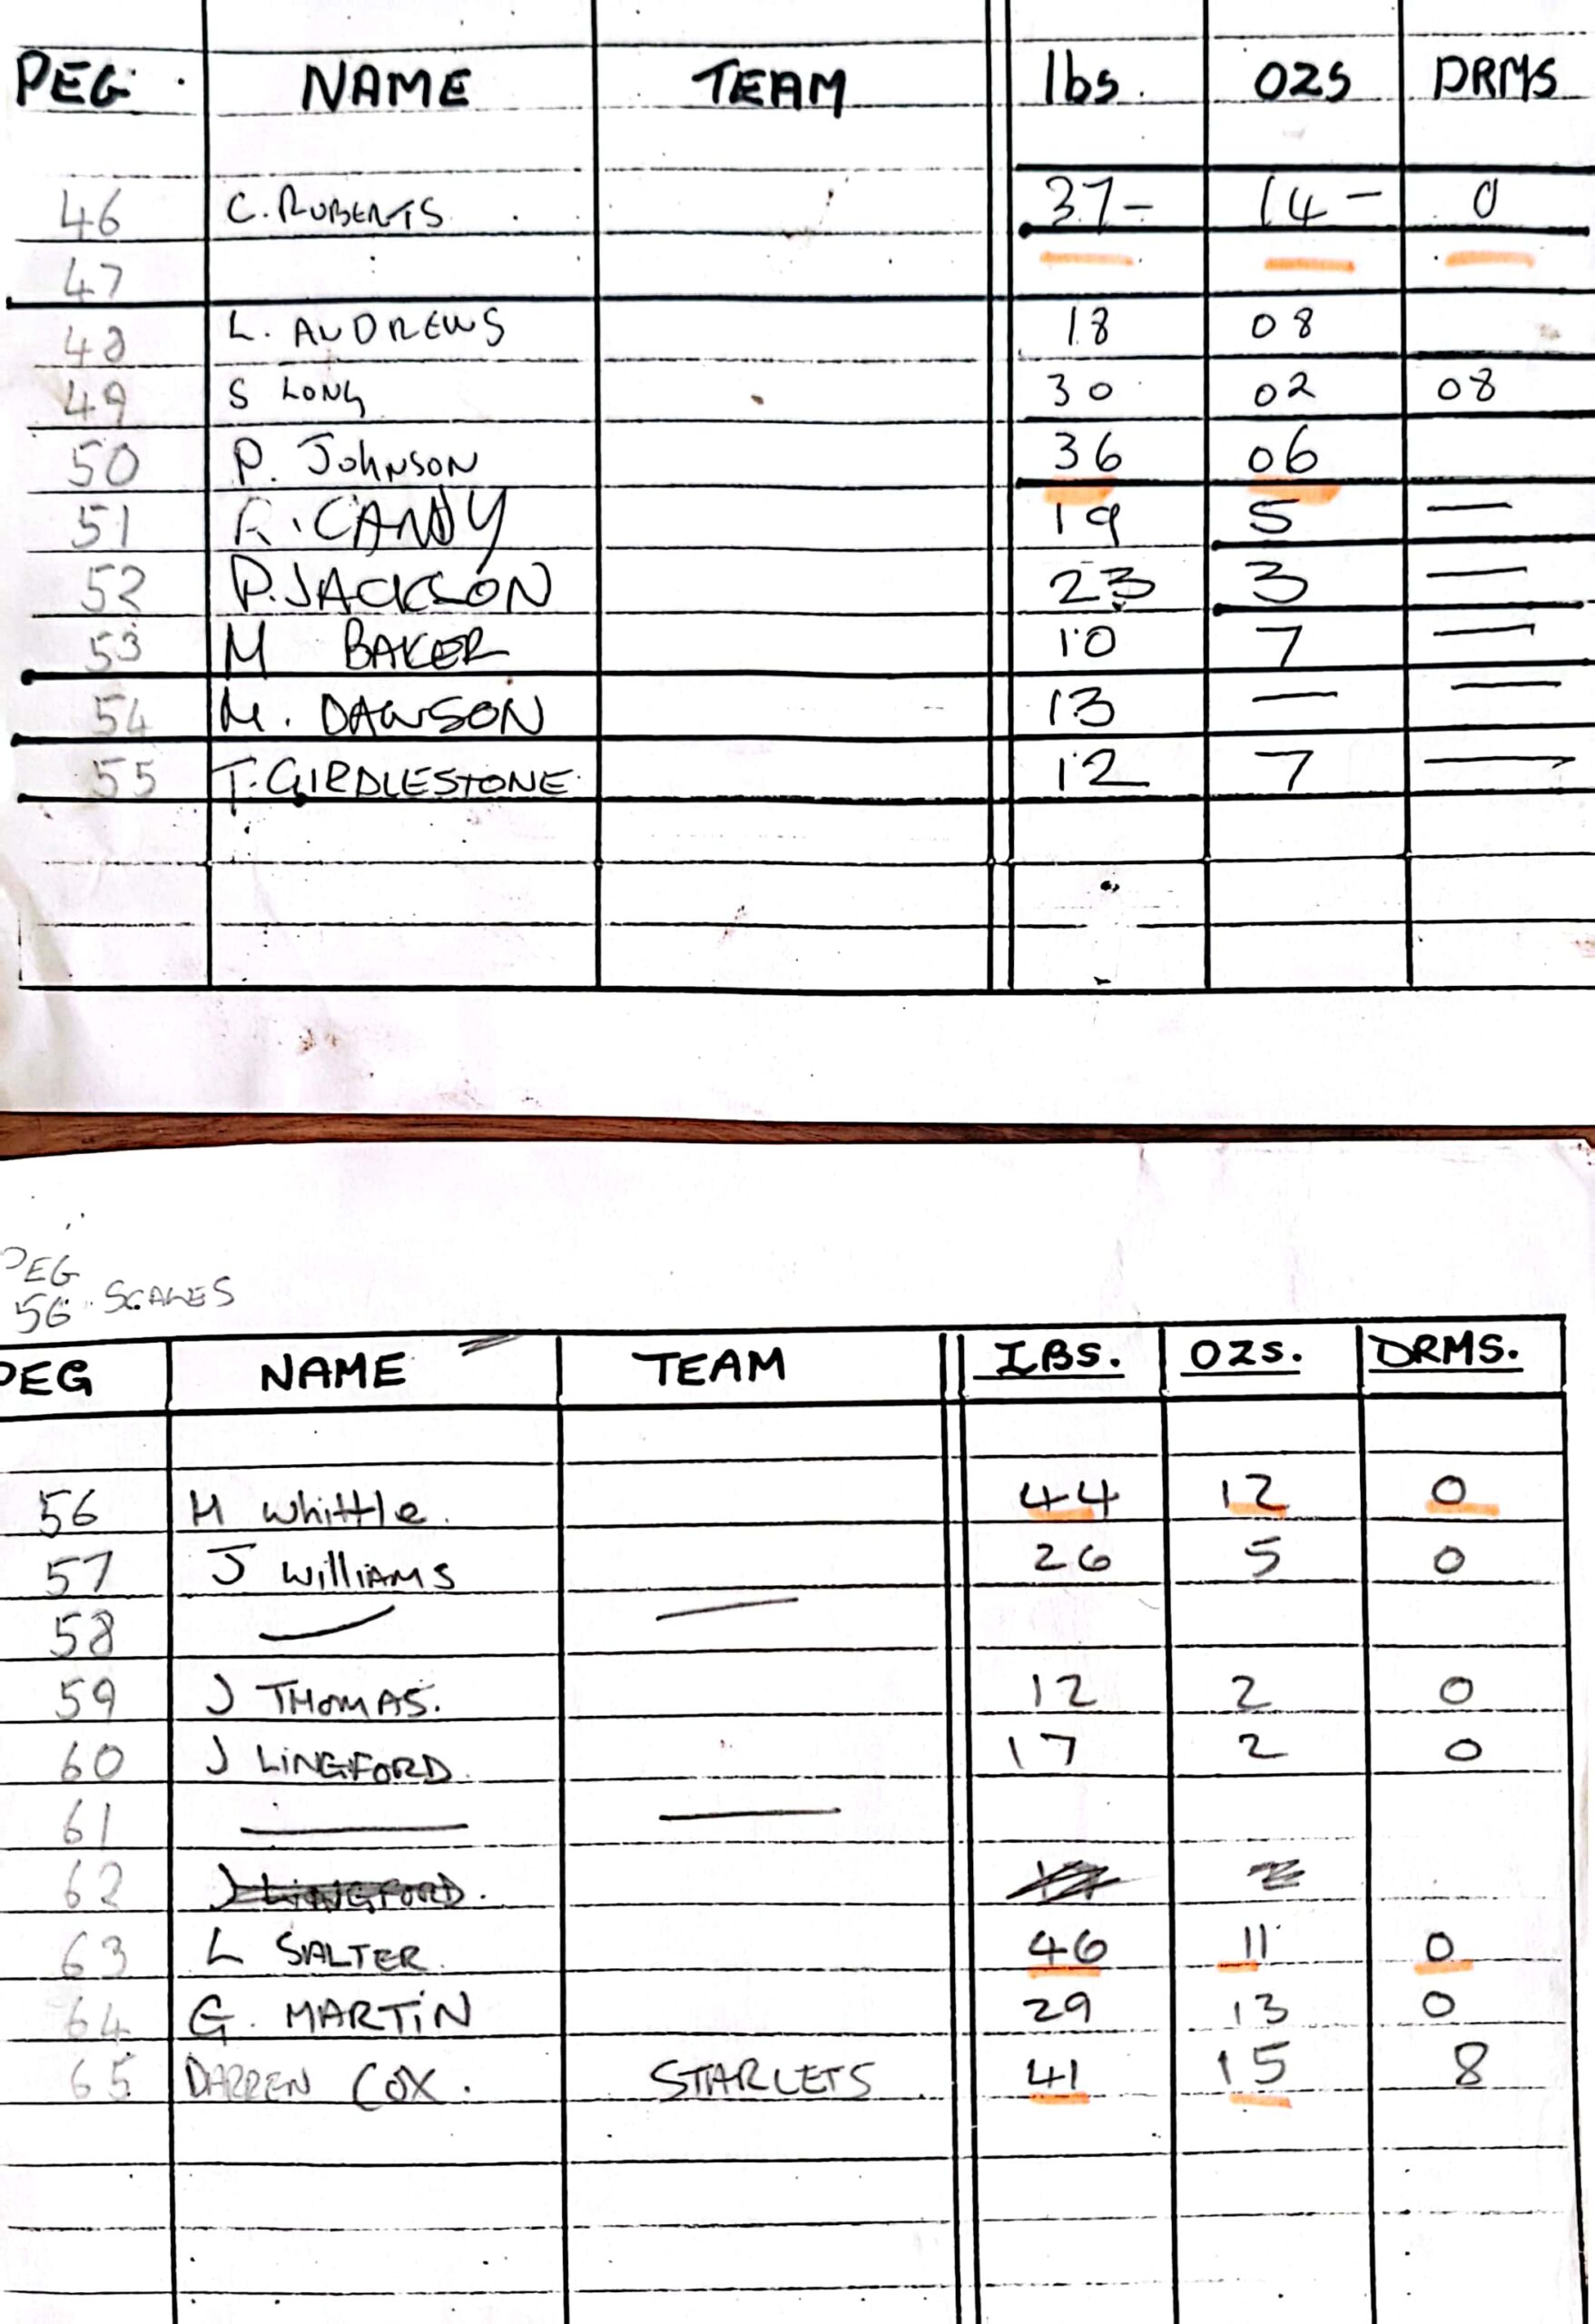 PEG NAME TEAM lbs. OZS DRMS
46 C. ROBERTS 37- 14- 0
47
48 L. ANDREWS 18 08
49 S LONG 30 02 08
50 P. JOHNSON 36 06
51 R. CANDY 19 5 —
52 P. JACKSON 23 3 —
53 M BAKER 10 7 —
54 M. DAWSON 13 — —
55 T. GIRDLESTONE 12 7 —
PEG
56 SCALES
PEG NAME TEAM IBS. OZS. DRMS.
56 M Whittle. 44 12 0
57 J WilliAMS 26 5 0
58 — —
59 J THOMAS. 12 2 0
60 J LiNGFORD. 17 2 0
61 — —
62 J LiNGFORD.
63 L SALTER. 46 11 0
64 G. MARTiN 29 13 0
65 DARREN COX. STARLETS 41 15 8